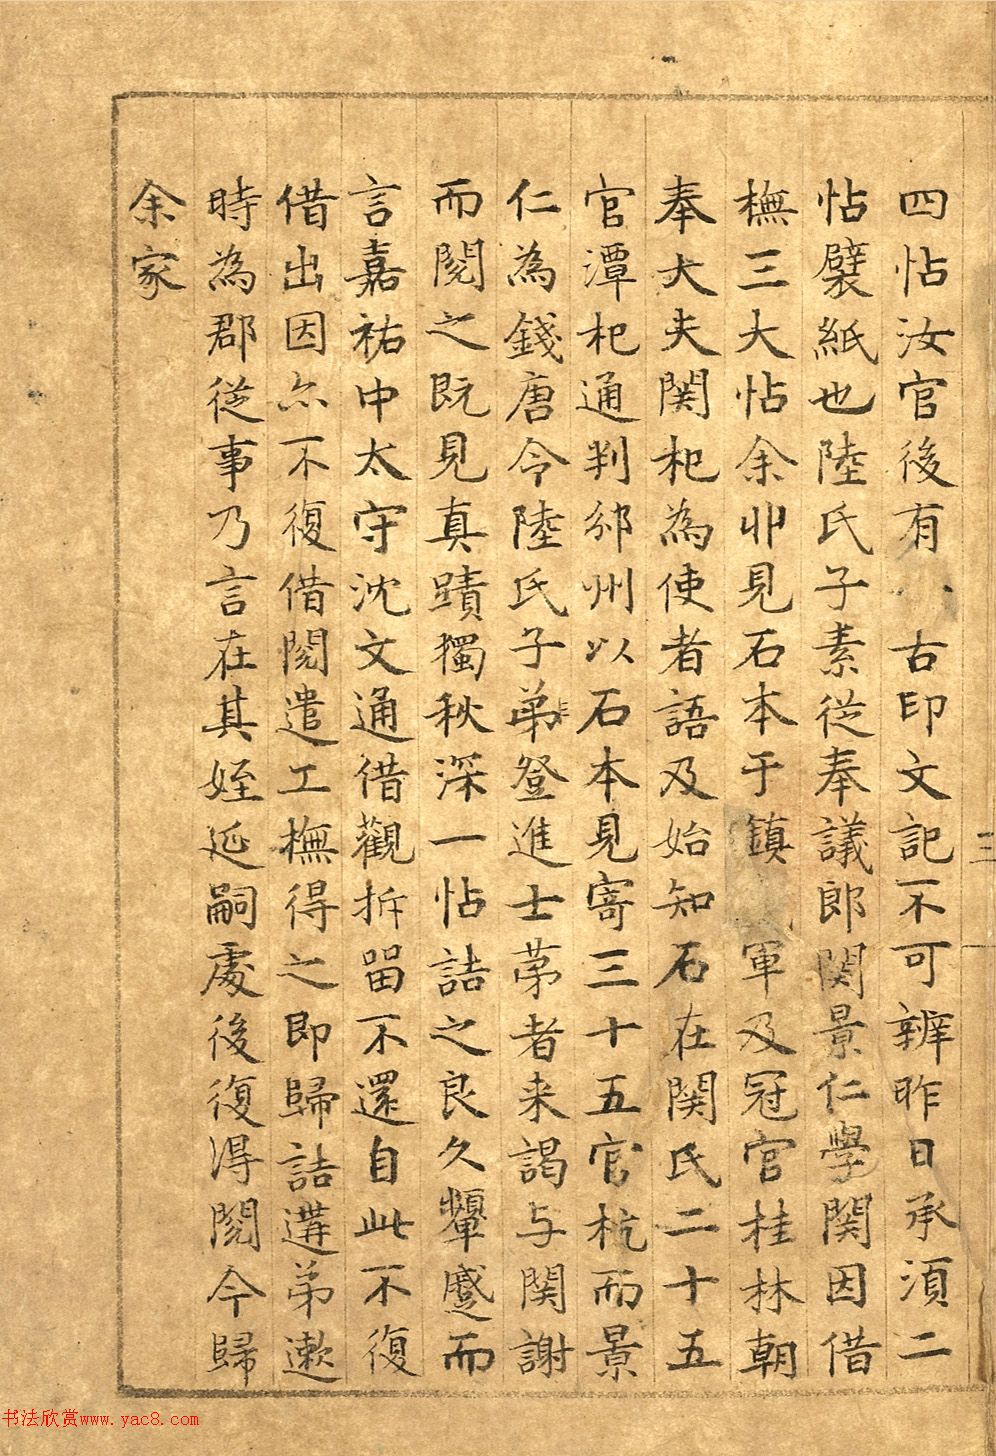 四帖汝官後有古印文記不可辨昨日承湏二
帖襞紙也陸氏子素從奉議郎関景仁學関因借
橅三大帖余丱見石本于鎮軍及冠官桂林朝
奉大夫関杞為使者語及始知石在関氏二十五
官潭杞通判邠州以石本見寄三十五官杭而景
仁為錢唐令陸氏子弟登進士苐者来謁与関謝
而閱之既見真蹟獨秋深一帖詰之良久顰蹙而
言嘉祐中太守沈文通借觀拆留不還自此不復
借出因尒不復借閱遣工橅得之即歸詰遘弟遬
時為郡從事乃言在其姪延嗣處後復淂閱今歸
余家
三
书法欣赏www.yac8.com